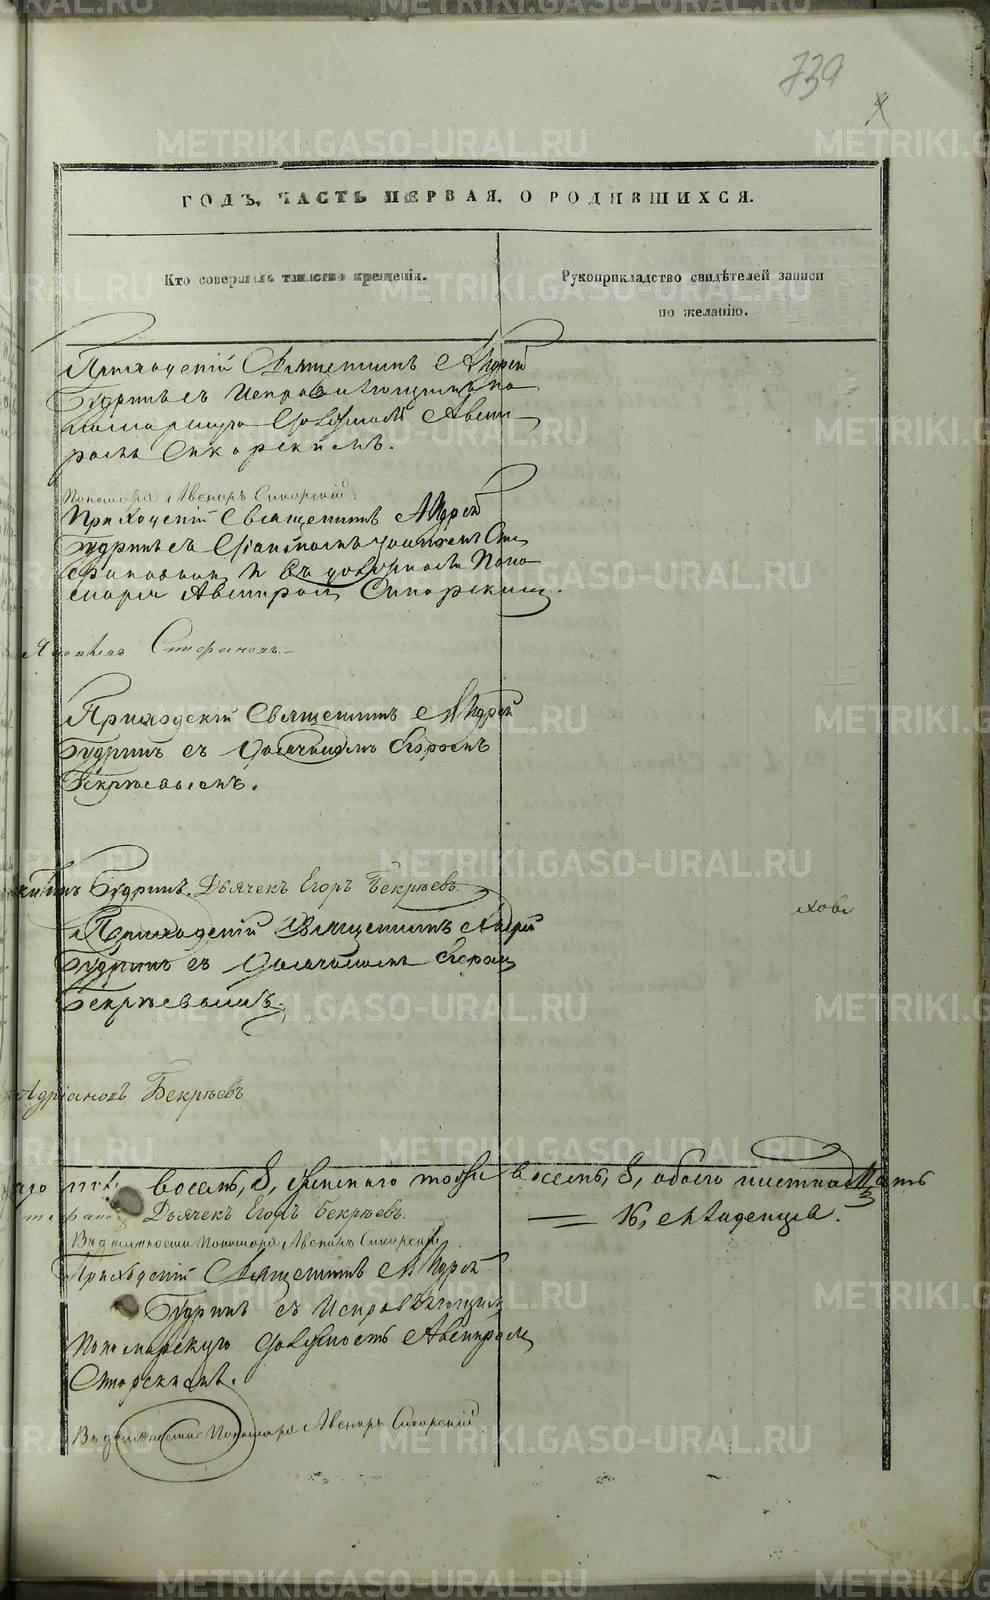 739
ГОДЪ, ЧАСТЬ ПЕРВАЯ, О РОДИВШИХСЯ.
Кто совершалъ таинство крещенія.
Рукоприкладство свидѣтелей записи
по желанію.
Приходскій Священникъ Андрей
Будринъ съ Исправляющимъ по
номарскую Должность Авени
ромъ Сикорскимъ.
Пономаря Авениръ Сикорскій.
Приходскій Священникъ Андрей
Будринъ съ Діакономъ Іоанномъ Сте
фановымъ и въ должности Поно
маря Авениромъ Сикорскимъ.
Стефановъ.
Приходскій Священникъ Андрей
Будринъ съ Дьячкомъ Егоромъ
Бекрѣевымъ.
Будринъ. Дьячекъ Егоръ Бекрѣевъ.
Приходскій Священникъ Андрей
Будринъ съ Дьячкомъ Егоромъ
Бекрѣевымъ.
Бекрѣевъ
восемь, 8, женскаго тоже восемь, 8, обоего шестнадцать
16, младенцевъ.
Дьячекъ Егоръ Бекрѣевъ.
Въ должности Пономаря Авениръ Сикорскій.
Приходскій Священникъ Андрей
Будринъ съ Исправляющимъ
Пономарскую Должность Авениромъ
Сикорскимъ.
Въ должности Пономаря Авениръ Сикорскій
METRIKI.GASO-URAL.RU